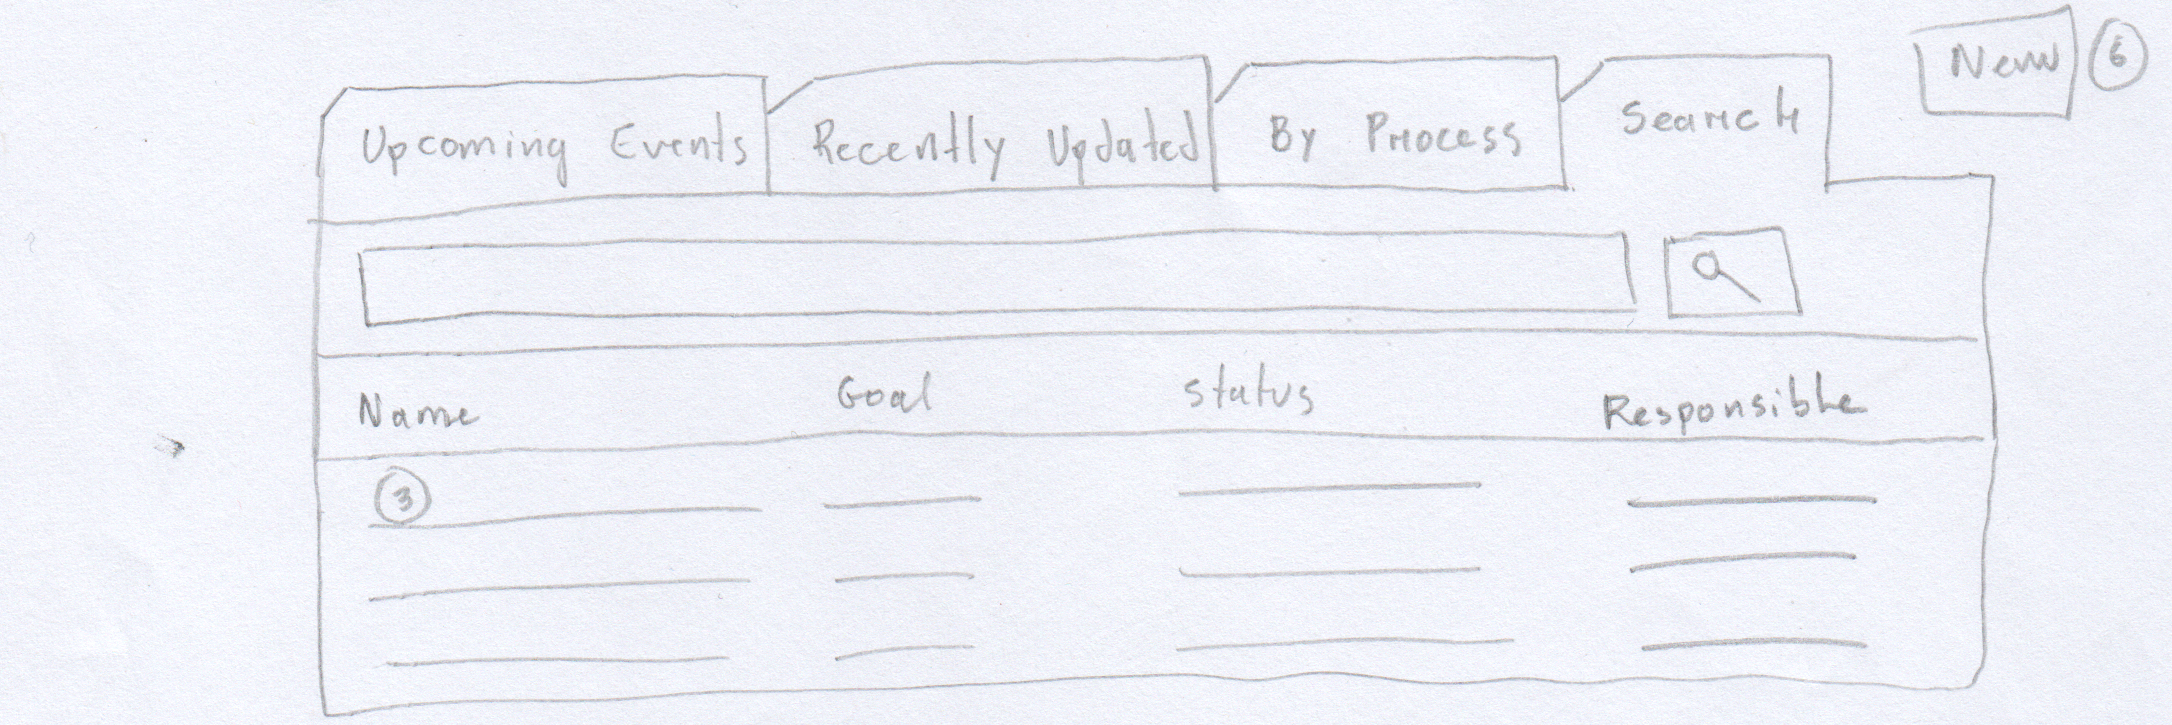 Upcoming Events Recently Updated By Process Search New 6
Name Goal Status Responsible
3